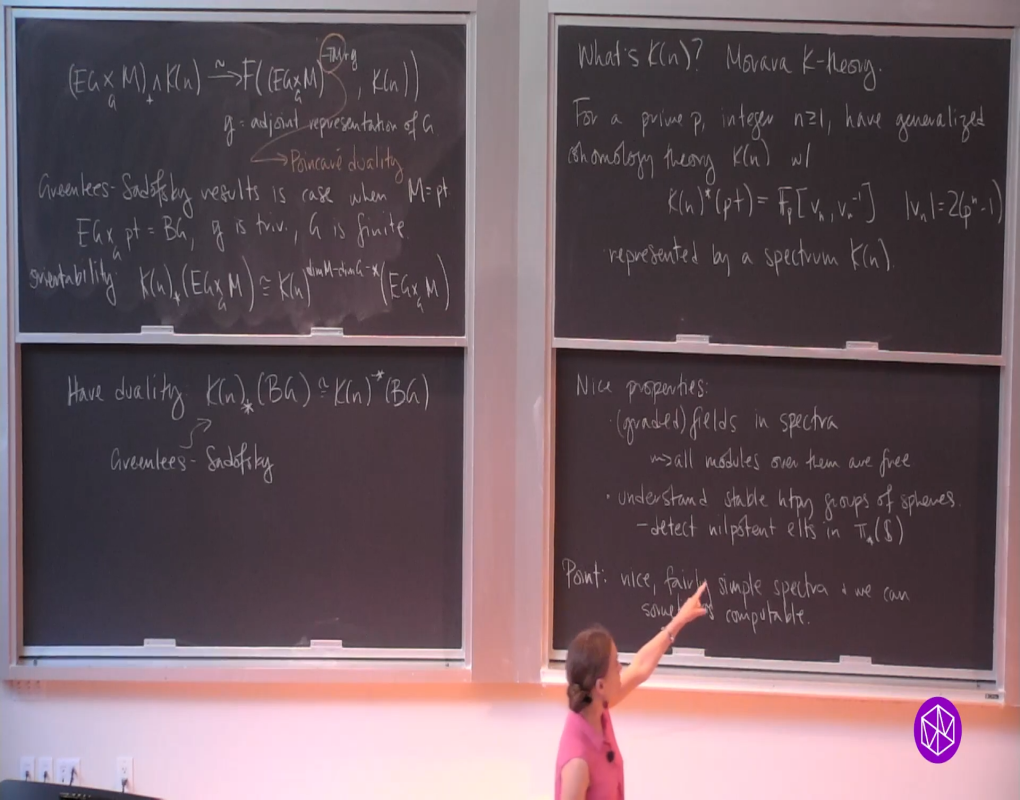 (EG ×_G M)_+ ∧ K(n) ≃→ F((EG ×_G M)^{-TM+g}, K(n))
g = adjoint representation of G
→ Poincaré duality
Greenlees-Sadofsky results is case when M = pt.
EG ×_G pt = BG, g is triv., G is finite.
orientability: K(n)_*(EG ×_G M) ≅ K(n)^{dim M - dim G - *}(EG ×_G M)
Have duality: K(n)_*(BG) ≅ K(n)^{-*}(BG)
Greenlees-Sadofsky
What's K(n)? Morava K-theory.
For a prime p, integer n≥1, have generalized
cohomology theory K(n) w/
K(n)^*(pt) = F_p[v_n, v_n^{-1}] |v_n| = 2(p^n-1)
represented by a spectrum K(n).
Nice properties:
· (graded) fields in spectra
⇝ all modules over them are free
· understand stable htpy groups of spheres.
- detect nilpotent elts in π_*(S)
Point: nice, fairly simple spectra + we can
computable.